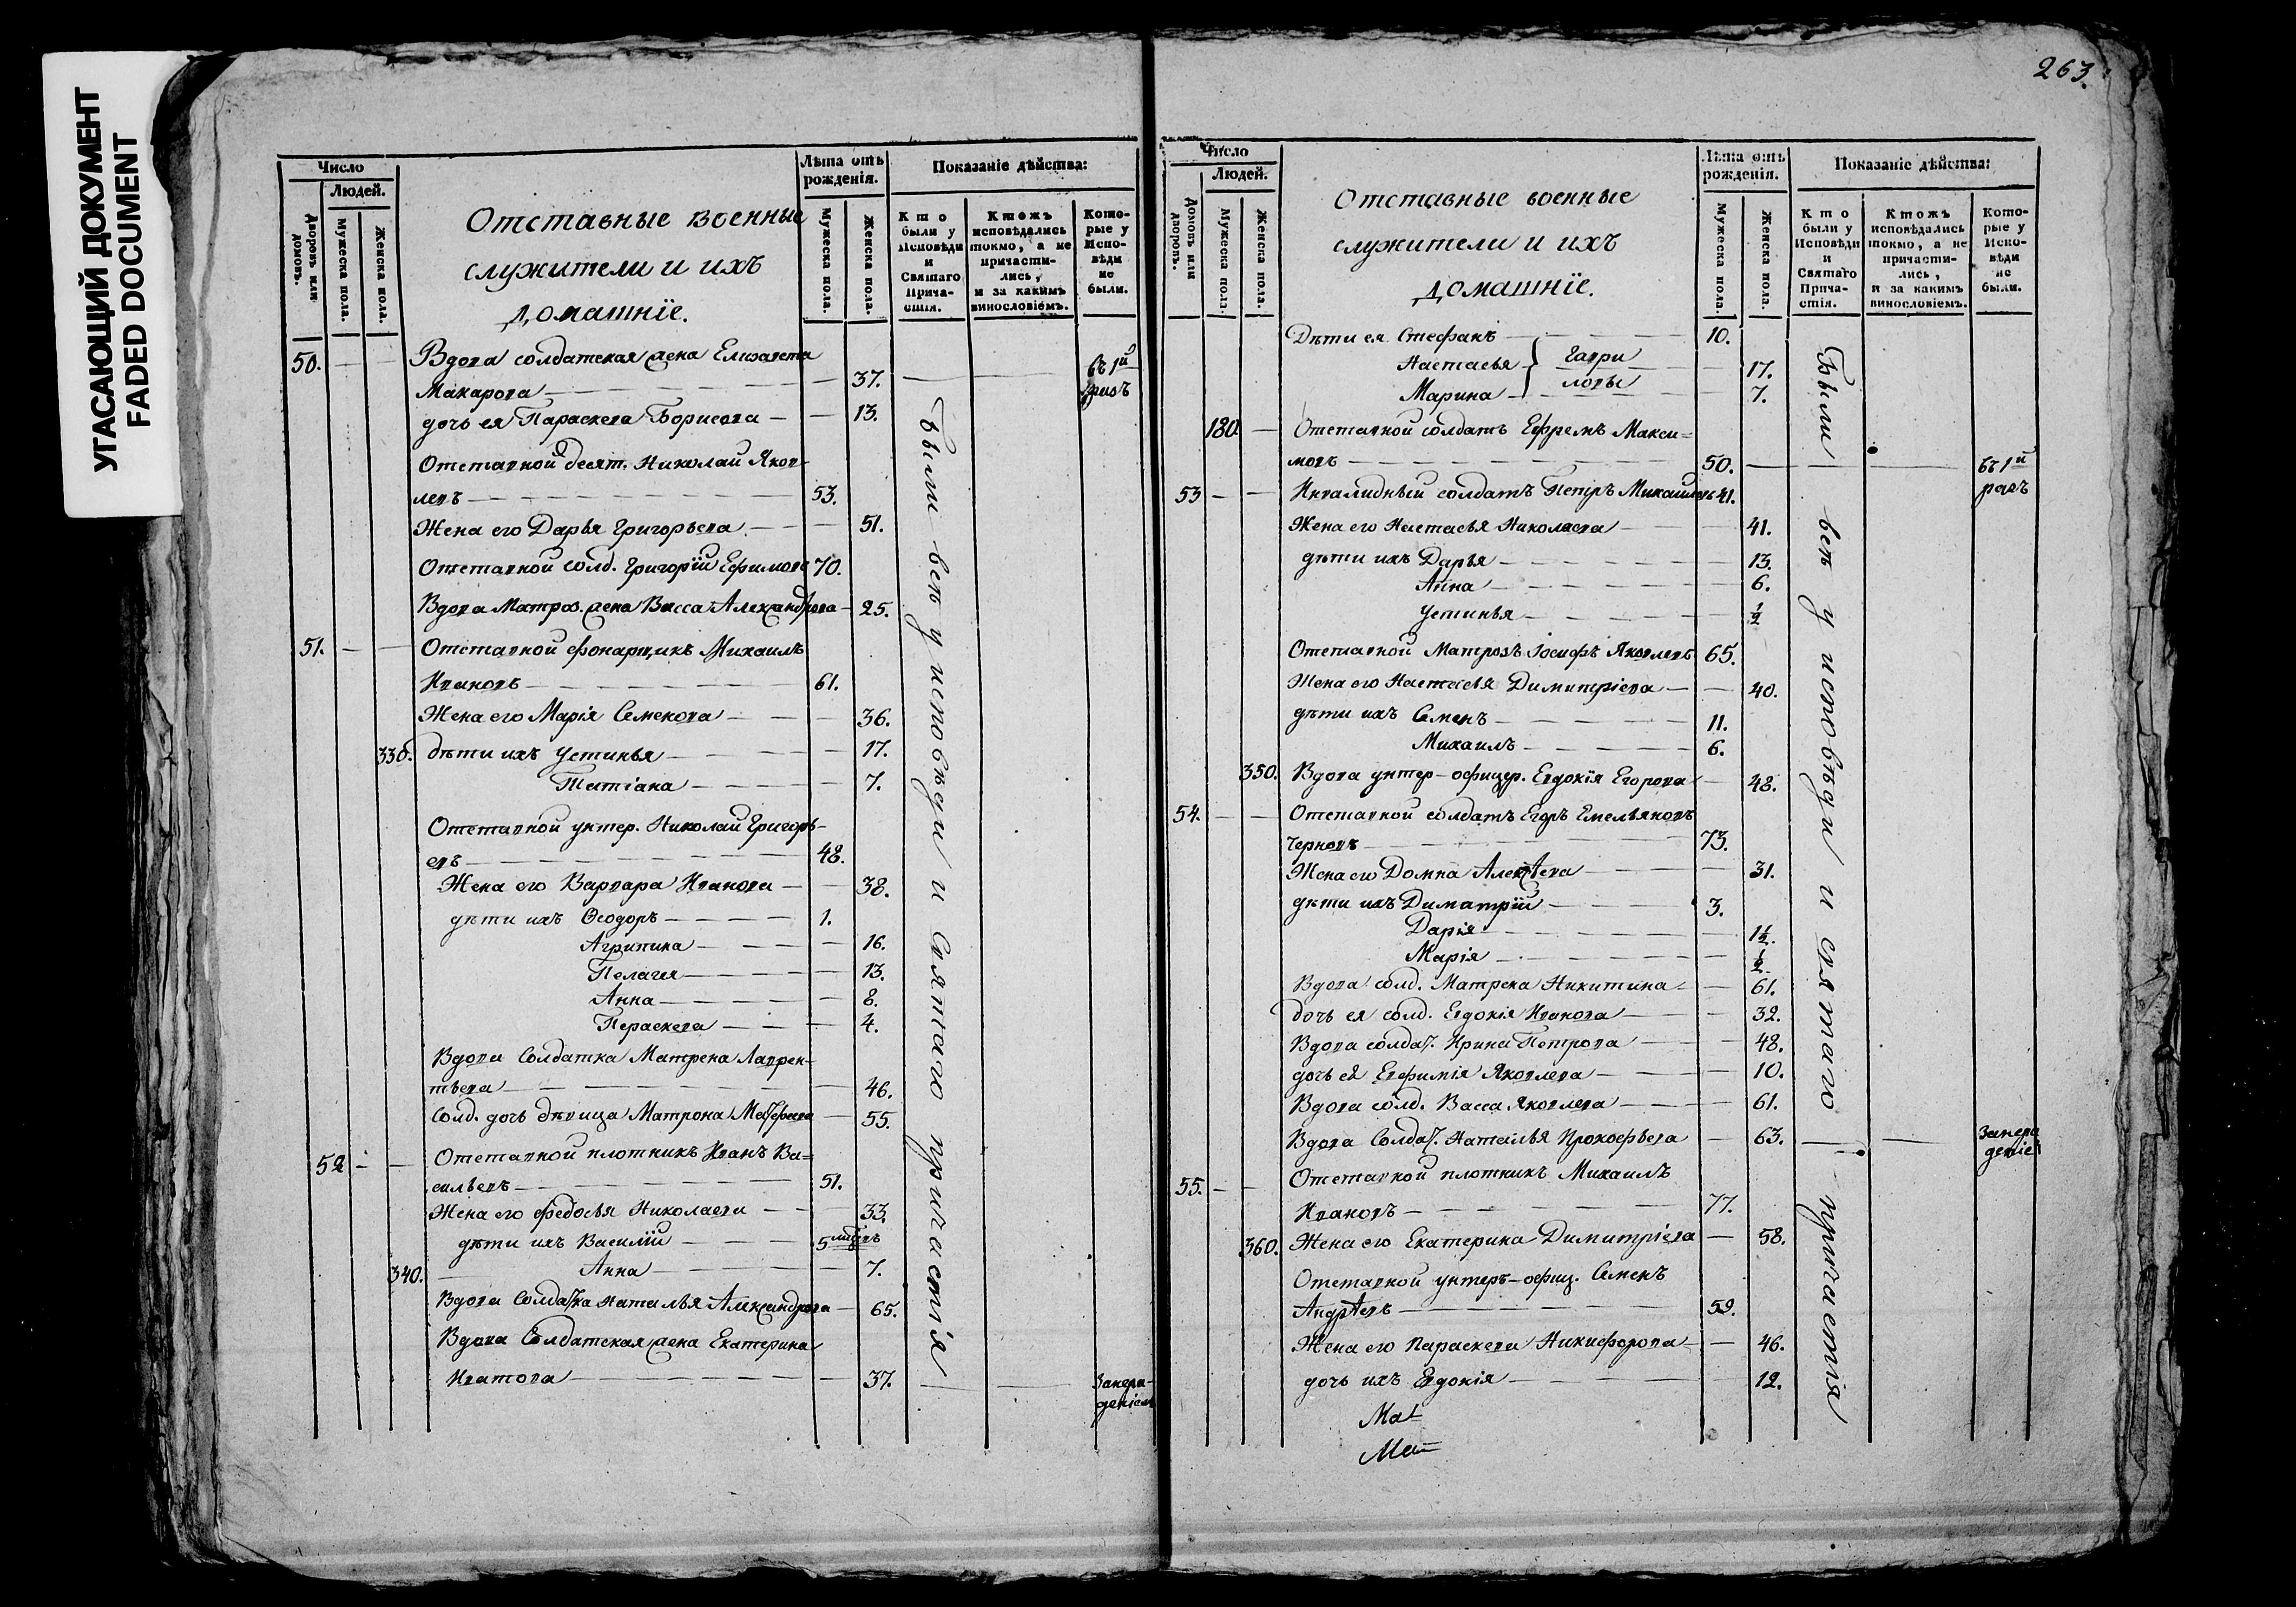 УГАСАЮЩИЙ ДОКУМЕНТ
FADED DOCUMENT
Число
Людей.
Дворовъ или домовъ.
Мужеска пола.
Женска пола.
Отставные военные
служители и ихъ
домашнїе.
Лѣта отъ рожденія.
Мужеска пола.
Женска пола.
Показаніе дѣйства:
Кто были у Исповѣди и Святаго Прича-стія.
Ктожъ исповѣдались токмо, а не причасти-лись, и за какимъ винословіемъ.
Кото-рые у Испо-вѣди не были.
50. — — Вдова солдатская жена Елизавета
Макарова — 37. — — въ 1й разъ
дочь ея Параскева Борисова — 13.
Отставной десят. Николай Яков-
левъ — 53.
Жена его Дарья Григорьева — 51.
Отставной солд. Григорїй Ефимовъ 70.
Вдова Матроз. жена Васса Александрова — 25.
51. — — Отставной фонарщикъ Михаилъ
Ивановъ — 61.
Жена его Марія Семенова — 36.
330. дѣти ихъ Устинья — 17.
Татіана — 7.
Отставной унтер. Николай Григорь-
евъ — 48.
Жена его Варвара Иванова — 38.
дѣти ихъ Ѳеодоръ — 1.
Агрипина — 16.
Пелагея — 13.
Анна — 8.
Пераскева — 4.
Вдова Солдатка Матрена Лаврен-
тьева — 46.
Солд. дочь дѣвица Матрона Матфеева — 55.
52 — — Отставной плотникъ Иванъ Ва=
сильевъ — 51.
Жена его Федосья Николаева — 33.
дѣти ихъ Василїй — 5
340. Анна — 7.
Вдова Солдатка Наталья Александрова — 65.
Вдова Солдатская жена Екатерина
Игнатова — 37. — —
Были всѣ у исповѣди и святаго причастія
263.
Число
Людей.
Домовъ или дворовъ.
Мужеска пола.
Женска пола.
Отставные военные
служители и ихъ
домашнїе.
Лѣта отъ рожденія.
Мужеска пола.
Женска пола.
Показаніе дѣйства:
Кто были у Исповѣди и Святаго Прича-стія.
Ктожъ исповѣдались токмо, а не причасти-лись, и за какимъ винословіемъ.
Кото-рые у Испо-вѣди не были.
Дѣти ея Стефанъ — 10.
Настасья } Гаври — 17.
Марина } ловы — 7.
180 — Отставной солдатъ Ефремъ Макси=
мовъ — 50. — — въ 1й разъ
53 — — Инвалидный солдатъ Петръ Михайловъ 41.
Жена его Настасья Николаева — 41.
дѣти ихъ Дарья — 13.
Анна — 6.
Устинья — ½
Отставной Матрозъ Іосифъ Яковлевъ 65.
Жена его Настасья Димитріева — 40.
дѣти ихъ Семенъ — 11.
Михаилъ — 6.
350. Вдова унтер-офицер. Евдокїя Егорова — 48.
54. — — Отставной солдатъ Егоръ Емельяновъ
Черновъ — 73.
Жена его Домна Алексѣева — 31.
дѣти ихъ Димитрїй — 3.
Дарія — 1½.
Марія — ½.
Вдова солд. Матрена Никитина — 61.
дочь ея солд. Евдокія Иванова — 32.
Вдова солдат. Ирина Петрова — 48.
дочь ея Евфимія Яковлева — 10.
Вдова солд. Васса Яковлева — 61.
Вдова Солдат. Наталья Прокофьева — 63. — —
55. — — Отставной плотникъ Михаилъ
Ивановъ — 77.
360. Жена его Екатерина Димитріева — 58.
Отставной унтеръ-офиц. Семенъ
Андрѣевъ — 59.
Жена его Параскева Никифорова — 46.
дочь ихъ Евдокія — 12.
Были всѣ у исповѣди и святаго причастія